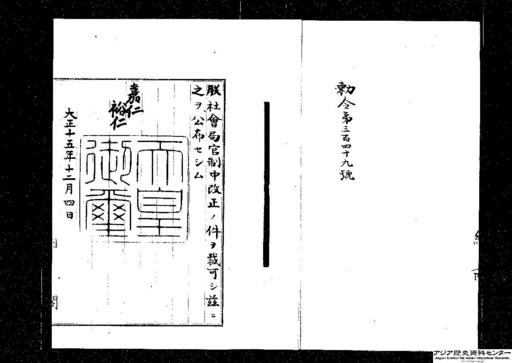 勅令第三百四十九號
朕社會局官制中改正ノ件ヲ裁可シ茲ニ
之ヲ公布セシム
嘉仁
裕仁
天皇
御璽
大正十五年十二月四日
内閣
アジア歴史資料センター
Japan Center for Asian Historical Records